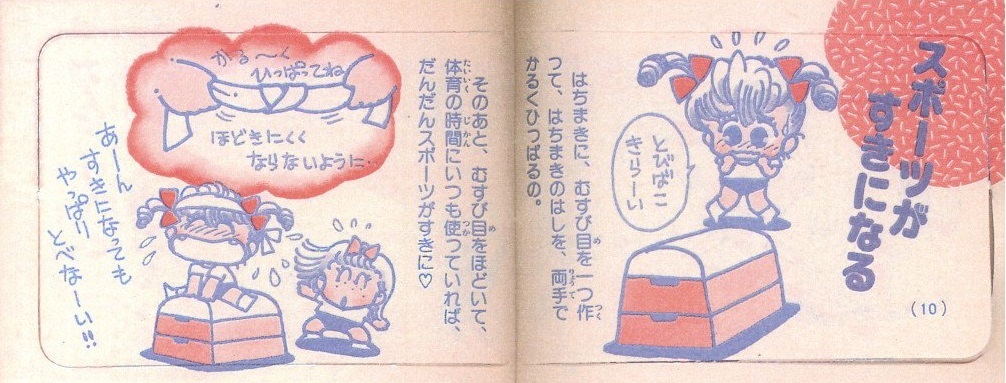 スポーツが
すきになる
(10)
とびばこ
きらーい
はちまきに、むすび目を一つ作
つて、はちまきのはしを、両手で
かるくひつぱるの。
そのあと、むすび目をほどいて、
体育の時間にいつも使つていれば、
だんだんスポーツがすきに♡
かる〜く
ひっぱってね
ほどきにくく
ならないように・
あーん
すきになっても
やっぱり
とべなーい!!